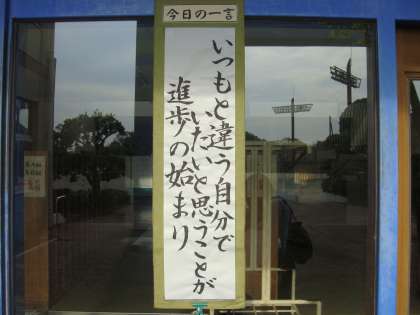 今日の一言
いつもと違う自分で
いたいと思うことが
進歩の始まり